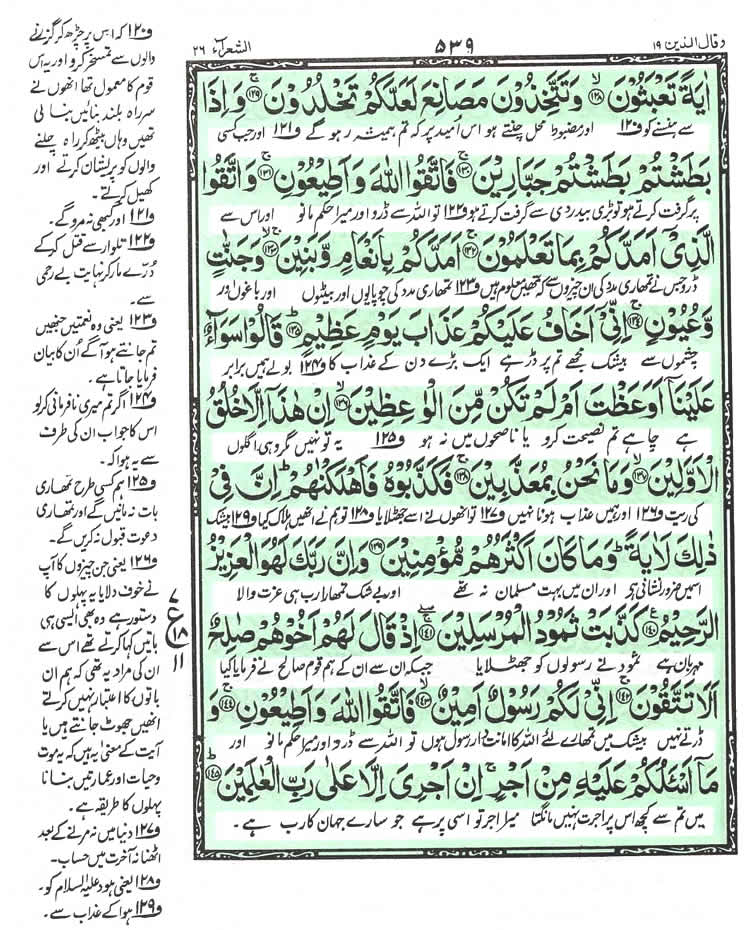 وقال الذين ١٩
۵۳۹
الشعرآء ٢٦
اٰیَةً تَعْبَثُوْنَ ﴿۱۲۸﴾ وَ تَتَّخِذُوْنَ مَصَانِعَ لَعَلَّكُمْ تَخْلُدُوْنَ ﴿۱۲۹﴾ وَ اِذَا
سے ہنسنے کو ف۱۲۰ اور مضبوط محل چنتے ہو اس اُمید پر کہ تم ہمیشہ رہو گے ف۱۲۱ اور جب کسی
بَطَشْتُمْ بَطَشْتُمْ جَبَّارِیْنَ ﴿۱۳۰﴾ فَاتَّقُوا اللّٰهَ وَ اَطِیْعُوْنِ ﴿۱۳۱﴾ وَ اتَّقُوا
پر گرفت کرتے ہو تو بڑی بیدردی سے گرفت کرتے ہو ف۱۲۲ تو اللہ سے ڈرو اور میرا حکم مانو اور اس سے
الَّذِیْۤ اَمَدَّكُمْ بِمَا تَعْلَمُوْنَ ﴿۱۳۲﴾ اَمَدَّكُمْ بِاَنْعَامٍ وَّ بَنِیْنَ ﴿۱۳۳﴾ وَ جَنّٰتٍ
ڈرو جس نے تمہاری مدد کی ان چیزوں سے کہ تمہیں معلوم ہیں ف۱۲۳ تمہاری مدد کی چوپایوں اور بیٹوں اور باغوں اور
وَّ عُیُوْنٍ ﴿۱۳۴﴾ اِنِّیْۤ اَخَافُ عَلَیْكُمْ عَذَابَ یَوْمٍ عَظِیْمٍ ﴿۱۳۵﴾ قَالُوْا سَوَآءٌ
چشموں سے بیشک مجھے تم پر ڈر ہے ایک بڑے دن کے عذاب کا ف۱۲۴ بولے ہمیں برابر
عَلَیْنَاۤ اَوَعَظْتَ اَمْ لَمْ تَكُنْ مِّنَ الْوٰعِظِیْنَ ﴿۱۳۶﴾ اِنْ هٰذَاۤ اِلَّا خُلُقُ
ہے چاہے تم نصیحت کرو یا ناصحوں میں نہ ہو ف۱۲۵ یہ تو نہیں مگر وہی اگلوں
الْاَوَّلِیْنَ ﴿۱۳۷﴾ وَ مَا نَحْنُ بِمُعَذَّبِیْنَ ﴿۱۳۸﴾ فَكَذَّبُوْهُ فَاَهْلَكْنٰهُمْ ؕ اِنَّ فِیْ
کی ریت ف۱۲۶ اور ہمیں عذاب ہونا نہیں ف۱۲۷ تو انھوں نے اسے جھٹلایا ف۱۲۸ تو ہم نے انھیں ہلاک کیا ف۱۲۹ بیشک
ذٰلِكَ لَاٰیَةً ؕ وَ مَا كَانَ اَكْثَرُهُمْ مُّؤْمِنِیْنَ ﴿۱۳۹﴾ وَ اِنَّ رَبَّكَ لَهُوَ الْعَزِیْزُ
اسمیں ضرور نشانی ہے اور ان میں بہت مسلمان نہ تھے اور بے شک تمہارا رب ہی عزت والا
الرَّحِیْمُ ﴿۱۴۰﴾ كَذَّبَتْ ثَمُوْدُ الْمُرْسَلِیْنَ ﴿۱۴۱﴾ اِذْ قَالَ لَهُمْ اَخُوْهُمْ صٰلِحٌ
مہربان ہے ثمود نے رسولوں کو جھٹلایا جبکہ ان سے ان کے ہم قوم صالح نے فرمایا کیا
اَلَا تَتَّقُوْنَ ﴿۱۴۲﴾ اِنِّیْ لَكُمْ رَسُوْلٌ اَمِیْنٌ ﴿۱۴۳﴾ فَاتَّقُوا اللّٰهَ وَ اَطِیْعُوْنِ ﴿۱۴۴﴾ وَ
ڈرتے نہیں بیشک میں تمہارے لئے اللہ کا امانت دار رسول ہوں تو اللہ سے ڈرو اور میرا حکم مانو اور
مَاۤ اَسْـَٔلُكُمْ عَلَیْهِ مِنْ اَجْرٍ ۚ اِنْ اَجْرِیَ اِلَّا عَلٰی رَبِّ الْعٰلَمِیْنَ ﴿۱۴۵﴾
میں تم سے کچھ اس پر اجرت نہیں مانگتا میرا اجر تو اسی پر ہے جو سارے جہان کا رب ہے۔
ف۱۲۰ کہ اس پر چڑھ کر گزرنے
والوں سے تمسخر کرو اور یہ اس
قوم کا معمول تھا انھوں نے
سرراہ بلند بنائیں بنا لی
تھیں وہاں بیٹھ کر راہ چلنے
والوں کو پریشان کرتے اور
کھیل کرتے۔
ف۱۲۱ اور کبھی نہ مرو گے۔
ف۱۲۲ تلوار سے قتل کر کے
دُرّے مار کر نہایت بے رحمی
سے۔
ف۱۲۳ یعنی وہ نعمتیں جنھیں
تم جانتے ہو آگے اُن کا بیان
فرمایا جاتا ہے۔
ف۱۲۴ اگر تم میری نافرمانی کرو
اس کا جواب ان کی طرف
سے یہ ہوا کہ۔
ف۱۲۵ ہم کسی طرح تمہاری
بات نہ مانیں گے اور تمہاری
دعوت قبول نہ کریں گے۔
ف۱۲۶ یعنی جن چیزوں کا آپ
نے خوف دلایا یہ پہلوں کا
دستور ہے وہ بھی ایسی ہی
باتیں کہا کرتے تھے اس سے
ان کی مراد یہ تھی کہ ہم ان
باتوں کا اعتبار نہیں کرتے
انھیں جھوٹ جانتے ہیں یا
آیت کے معنی یہ ہیں کہ یہ موت
وحیات اور عمارتیں بنانا
پہلوں کا طریقہ ہے۔
ف۱۲۷ دنیا میں نہ مرنے کے بعد
اٹھنا نہ آخرت میں حساب۔
ف۱۲۸ یعنی ہود علیہ السلام کو۔
ف۱۲۹ ہوا کے عذاب سے۔
۷
ع
۱۸
۱۱